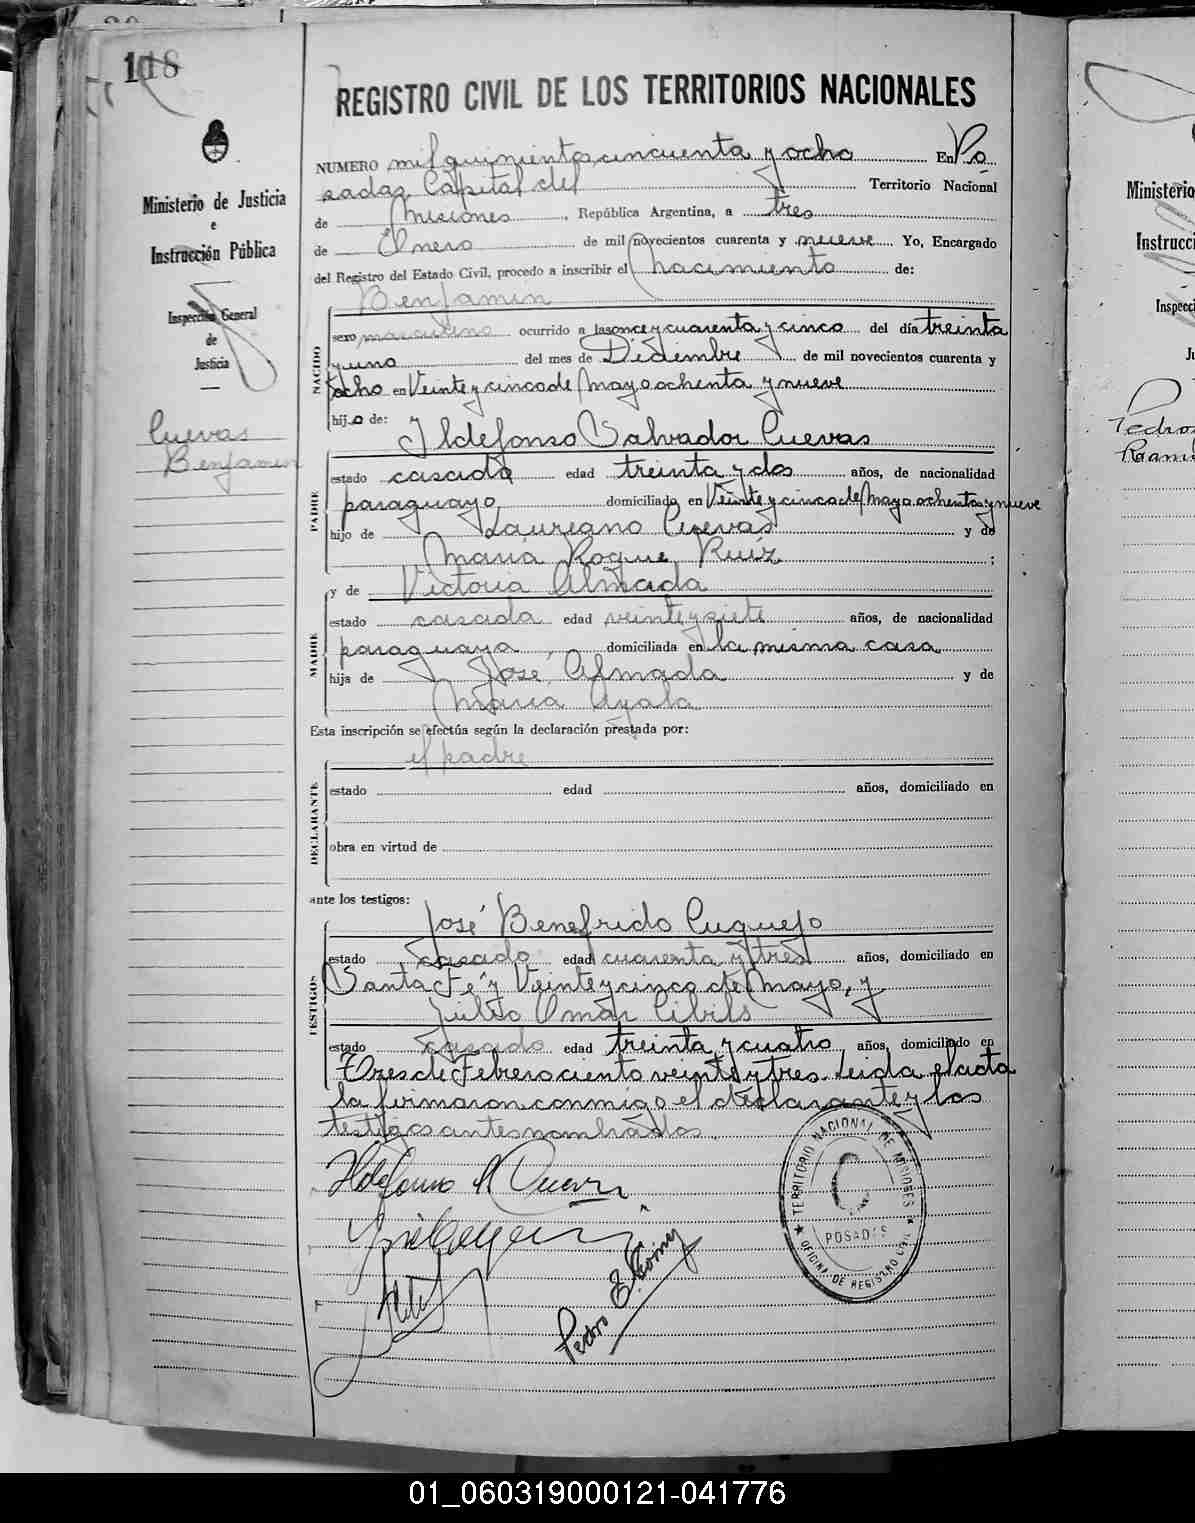 118
REGISTRO CIVIL DE LOS TERRITORIOS NACIONALES
Ministerio de Justicia
e
Instrucción Pública
Inspección General
de
Justicia
Cuevas
Benjamin
NUMERO mil quinientos cincuenta y ocho En Po
sadas Capital del Territorio Nacional
de Misiones, República Argentina, a tres
de Enero de mil novecientos cuarenta y nueve Yo, Encargado
del Registro del Estado Civil, procedo a inscribir el nacimiento de:
Benjamin
NACIDO
sexo masculino ocurrido a las once y cuarenta y cinco del día treinta
y uno del mes de Diciembre de mil novecientos cuarenta y
ocho en Veinte y cinco de Mayo ochenta y nueve
hijo de:
Ildefonso Salvador Cuevas
PADRE
estado casado edad treinta y dos años, de nacionalidad
paraguayo, domiciliado en Veinte y cinco de Mayo ochenta y nueve
hijo de Laureano Cuevas y de
Maria Roque Ruíz ;
y de Victoria Almada
MADRE
estado casada edad veinte y siete años, de nacionalidad
paraguaya, domiciliada en la misma casa
hija de José Almada y de
Maria Ayala
Esta inscripción se efectúa según la declaración prestada por:
el padre
DECLARANTE
estado edad años, domiciliado en
obra en virtud de
ante los testigos:
José Benefrido Cuquejo
TESTIGOS
estado casado edad cuarenta y tres años, domiciliado en
Santa Fé y Veinte y cinco de Mayo, y
Julio Omar Cibils
estado casado edad treinta y cuatro, años, domiciliado en
Tres de Febrero ciento veinte y tres. Leida el acta
la firmaron conmigo el declarante y los
testigos antes nombrados.
Ildefonso Cuevas
Pedro E.
TERRITORIO NACIONAL DE MISIONES
POSADAS
OFICINA DE REGISTRO CIVIL
Ministerio
Instrucci
Inspecci
Ju
Pedros
Ramo
01_060319000121-041776